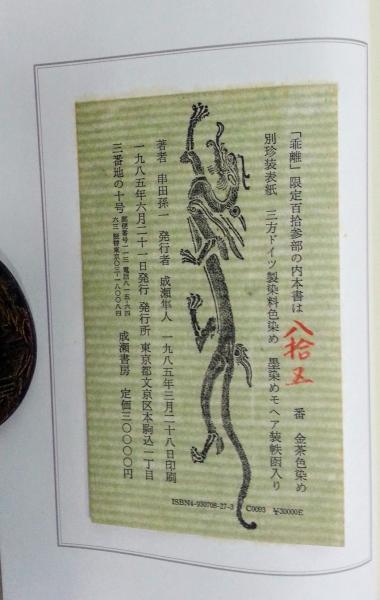 「乖離」限定百拾参部の内本書は 八拾五 番 金茶色染め
別珍装表紙 三方ドイツ製染料色染め 墨染めモヘア装帙函入り
著者 串田孫一 発行者 成瀬隼人 一九八五年三月二十八日印刷
一九八五年六月二十一日発行 発行所 東京都文京区本駒込一丁目
三番地の十号 郵便番号一一三 電話八一一五一六四 成瀬書房 定価三〇〇〇〇円
ISBN4-930708-27-3 C0093 ¥30000E